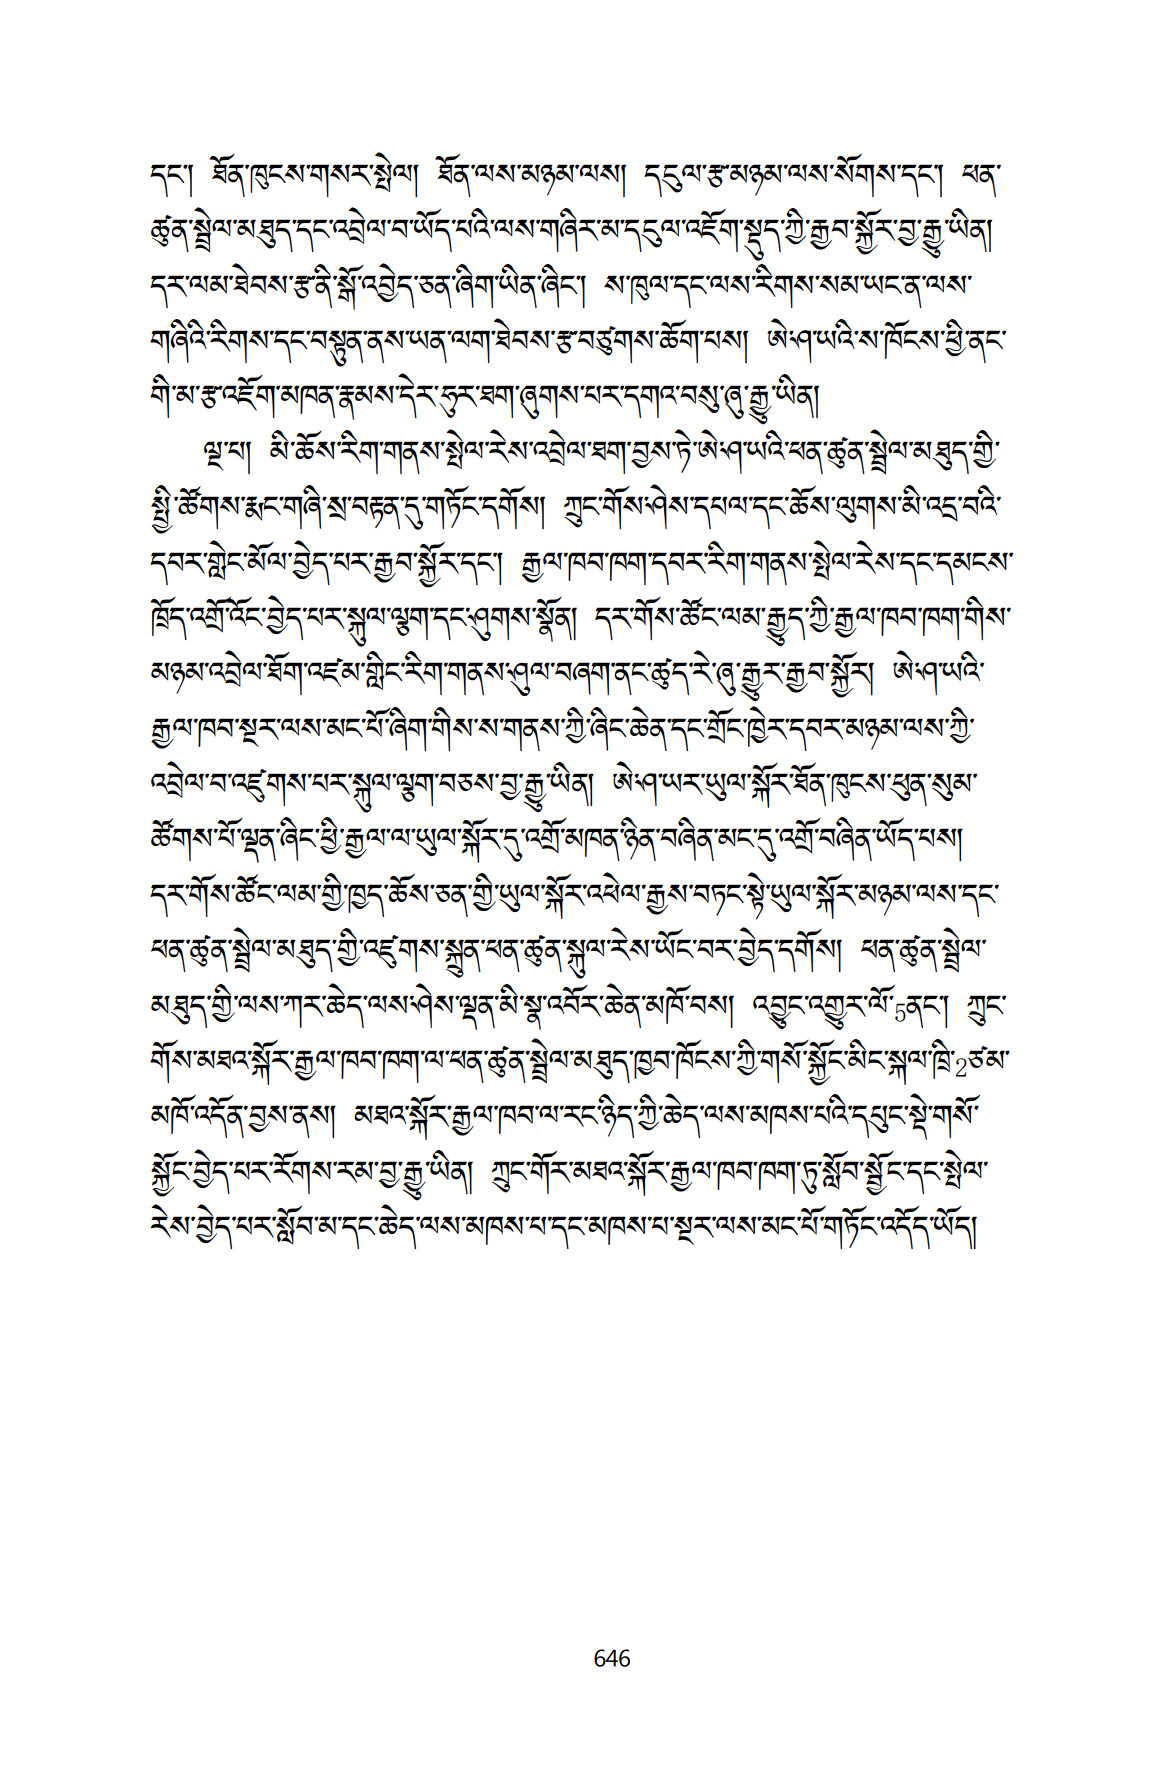 དང་། ཐོན་ཁུངས་གསར་སྤེལ། ཐོན་ལས་མཉམ་ལས། དངུལ་རྩ་མཉམ་ལས་སོགས་དང་། ཕན་
ཚུན་སྦྲེལ་མཐུད་དང་འབྲེལ་བ་ཡོད་པའི་ལས་གཞིར་མ་དངུལ་འཇོག་སྡུད་ཀྱི་རྒྱབ་སྐྱོར་བྱ་རྒྱུ་ཡིན།
དར་ལམ་ཐེབས་རྩ་ནི་སྒོ་འབྱེད་ཅན་ཞིག་ཡིན་ཞིང་། ས་ཁུལ་དང་ལས་རིགས་སམ་ཡང་ན་ལས་
གཞིའི་རིགས་དང་བསྟུན་ནས་ཡན་ལག་ཐེབས་རྩ་བཙུགས་ཆོག་པས། ཨེ་ཤ་ཡའི་ས་ཁོངས་ཕྱི་ནང་
གི་མ་རྩ་འཇོག་མཁན་རྣམས་དེར་ཧུར་ཐག་ཞུགས་པར་དགའ་བསུ་ཞུ་རྒྱུ་ཡིན།
ལྔ་པ། མི་ཆོས་རིག་གནས་སྤེལ་རེས་འབྲེལ་ཐག་བྱས་ཏེ་ཨེ་ཤ་ཡའི་ཕན་ཚུན་སྦྲེལ་མཐུད་ཀྱི་
སྤྱི་ཚོགས་རྨང་གཞི་སྲ་བརྟན་དུ་གཏོང་དགོས། ཀྲུང་གོས་ཤེས་དཔལ་དང་ཆོས་ལུགས་མི་འདྲ་བའི་
དབར་གླེང་མོལ་བྱེད་པར་རྒྱབ་སྐྱོར་དང་། རྒྱལ་ཁབ་ཁག་དབར་རིག་གནས་སྤེལ་རེས་དང་དམངས་
ཁྲོད་འགྲོ་འོང་བྱེད་པར་སྐུལ་ལྕག་དང་ཤུགས་སྣོན། དར་གོས་ཚོང་ལམ་རྒྱུད་ཀྱི་རྒྱལ་ཁབ་ཁག་གིས་
མཉམ་འབྲེལ་ཐོག་འཛམ་གླིང་རིག་གནས་ཤུལ་བཞག་ནང་ཚུད་རེ་ཞུ་རྒྱུར་རྒྱབ་སྐྱོར། ཨེ་ཤ་ཡའི་
རྒྱལ་ཁབ་སྔར་ལས་མང་པོ་ཞིག་གིས་ས་གནས་ཀྱི་ཞིང་ཆེན་དང་གྲོང་ཁྱེར་དབར་མཉམ་ལས་ཀྱི་
འབྲེལ་བ་འཛུགས་པར་སྐུལ་ལྕག་བཅས་བྱ་རྒྱུ་ཡིན། ཨེ་ཤ་ཡར་ཡུལ་སྐོར་ཐོན་ཁུངས་ཕུན་སུམ་
ཚོགས་པོ་ལྡན་ཞིང་ཕྱི་རྒྱལ་ལ་ཡུལ་སྐོར་དུ་འགྲོ་མཁན་ཉིན་བཞིན་མང་དུ་འགྲོ་བཞིན་ཡོད་པས།
དར་གོས་ཚོང་ལམ་གྱི་ཁྱད་ཆོས་ཅན་གྱི་ཡུལ་སྐོར་འཕེལ་རྒྱས་བཏང་སྟེ་ཡུལ་སྐོར་མཉམ་ལས་དང་
ཕན་ཚུན་སྦྲེལ་མཐུད་ཀྱི་འཛུགས་སྐྲུན་ཕན་ཚུན་སྐུལ་རེས་ཡོང་བར་བྱེད་དགོས། ཕན་ཚུན་སྦྲེལ་
མཐུད་ཀྱི་ལས་ཀར་ཆེད་ལས་ཤེས་ལྡན་མི་སྣ་འབོར་ཆེན་མཁོ་བས། འབྱུང་འགྱུར་ལོ་5ནང་། ཀྲུང་
གོས་མཐའ་སྐོར་རྒྱལ་ཁབ་ཁག་ལ་ཕན་ཚུན་སྦྲེལ་མཐུད་ཁྱབ་ཁོངས་ཀྱི་གསོ་སྐྱོང་མིང་སྐལ་ཁྲི་2ཙམ་
མཁོ་འདོན་བྱས་ནས། མཐའ་སྐོར་རྒྱལ་ཁབ་ལ་རང་ཉིད་ཀྱི་ཆེད་ལས་མཁས་པའི་དཔུང་སྡེ་གསོ་
སྐྱོང་བྱེད་པར་རོགས་རམ་བྱ་རྒྱུ་ཡིན། ཀྲུང་གོར་མཐའ་སྐོར་རྒྱལ་ཁབ་ཁག་ཏུ་སློབ་སྦྱོང་དང་སྤེལ་
རེས་བྱེད་པར་སློབ་མ་དང་ཆེད་ལས་མཁས་པ་དང་མཁས་པ་སྔར་ལས་མང་པོ་གཏོང་འདོད་ཡོད།
646